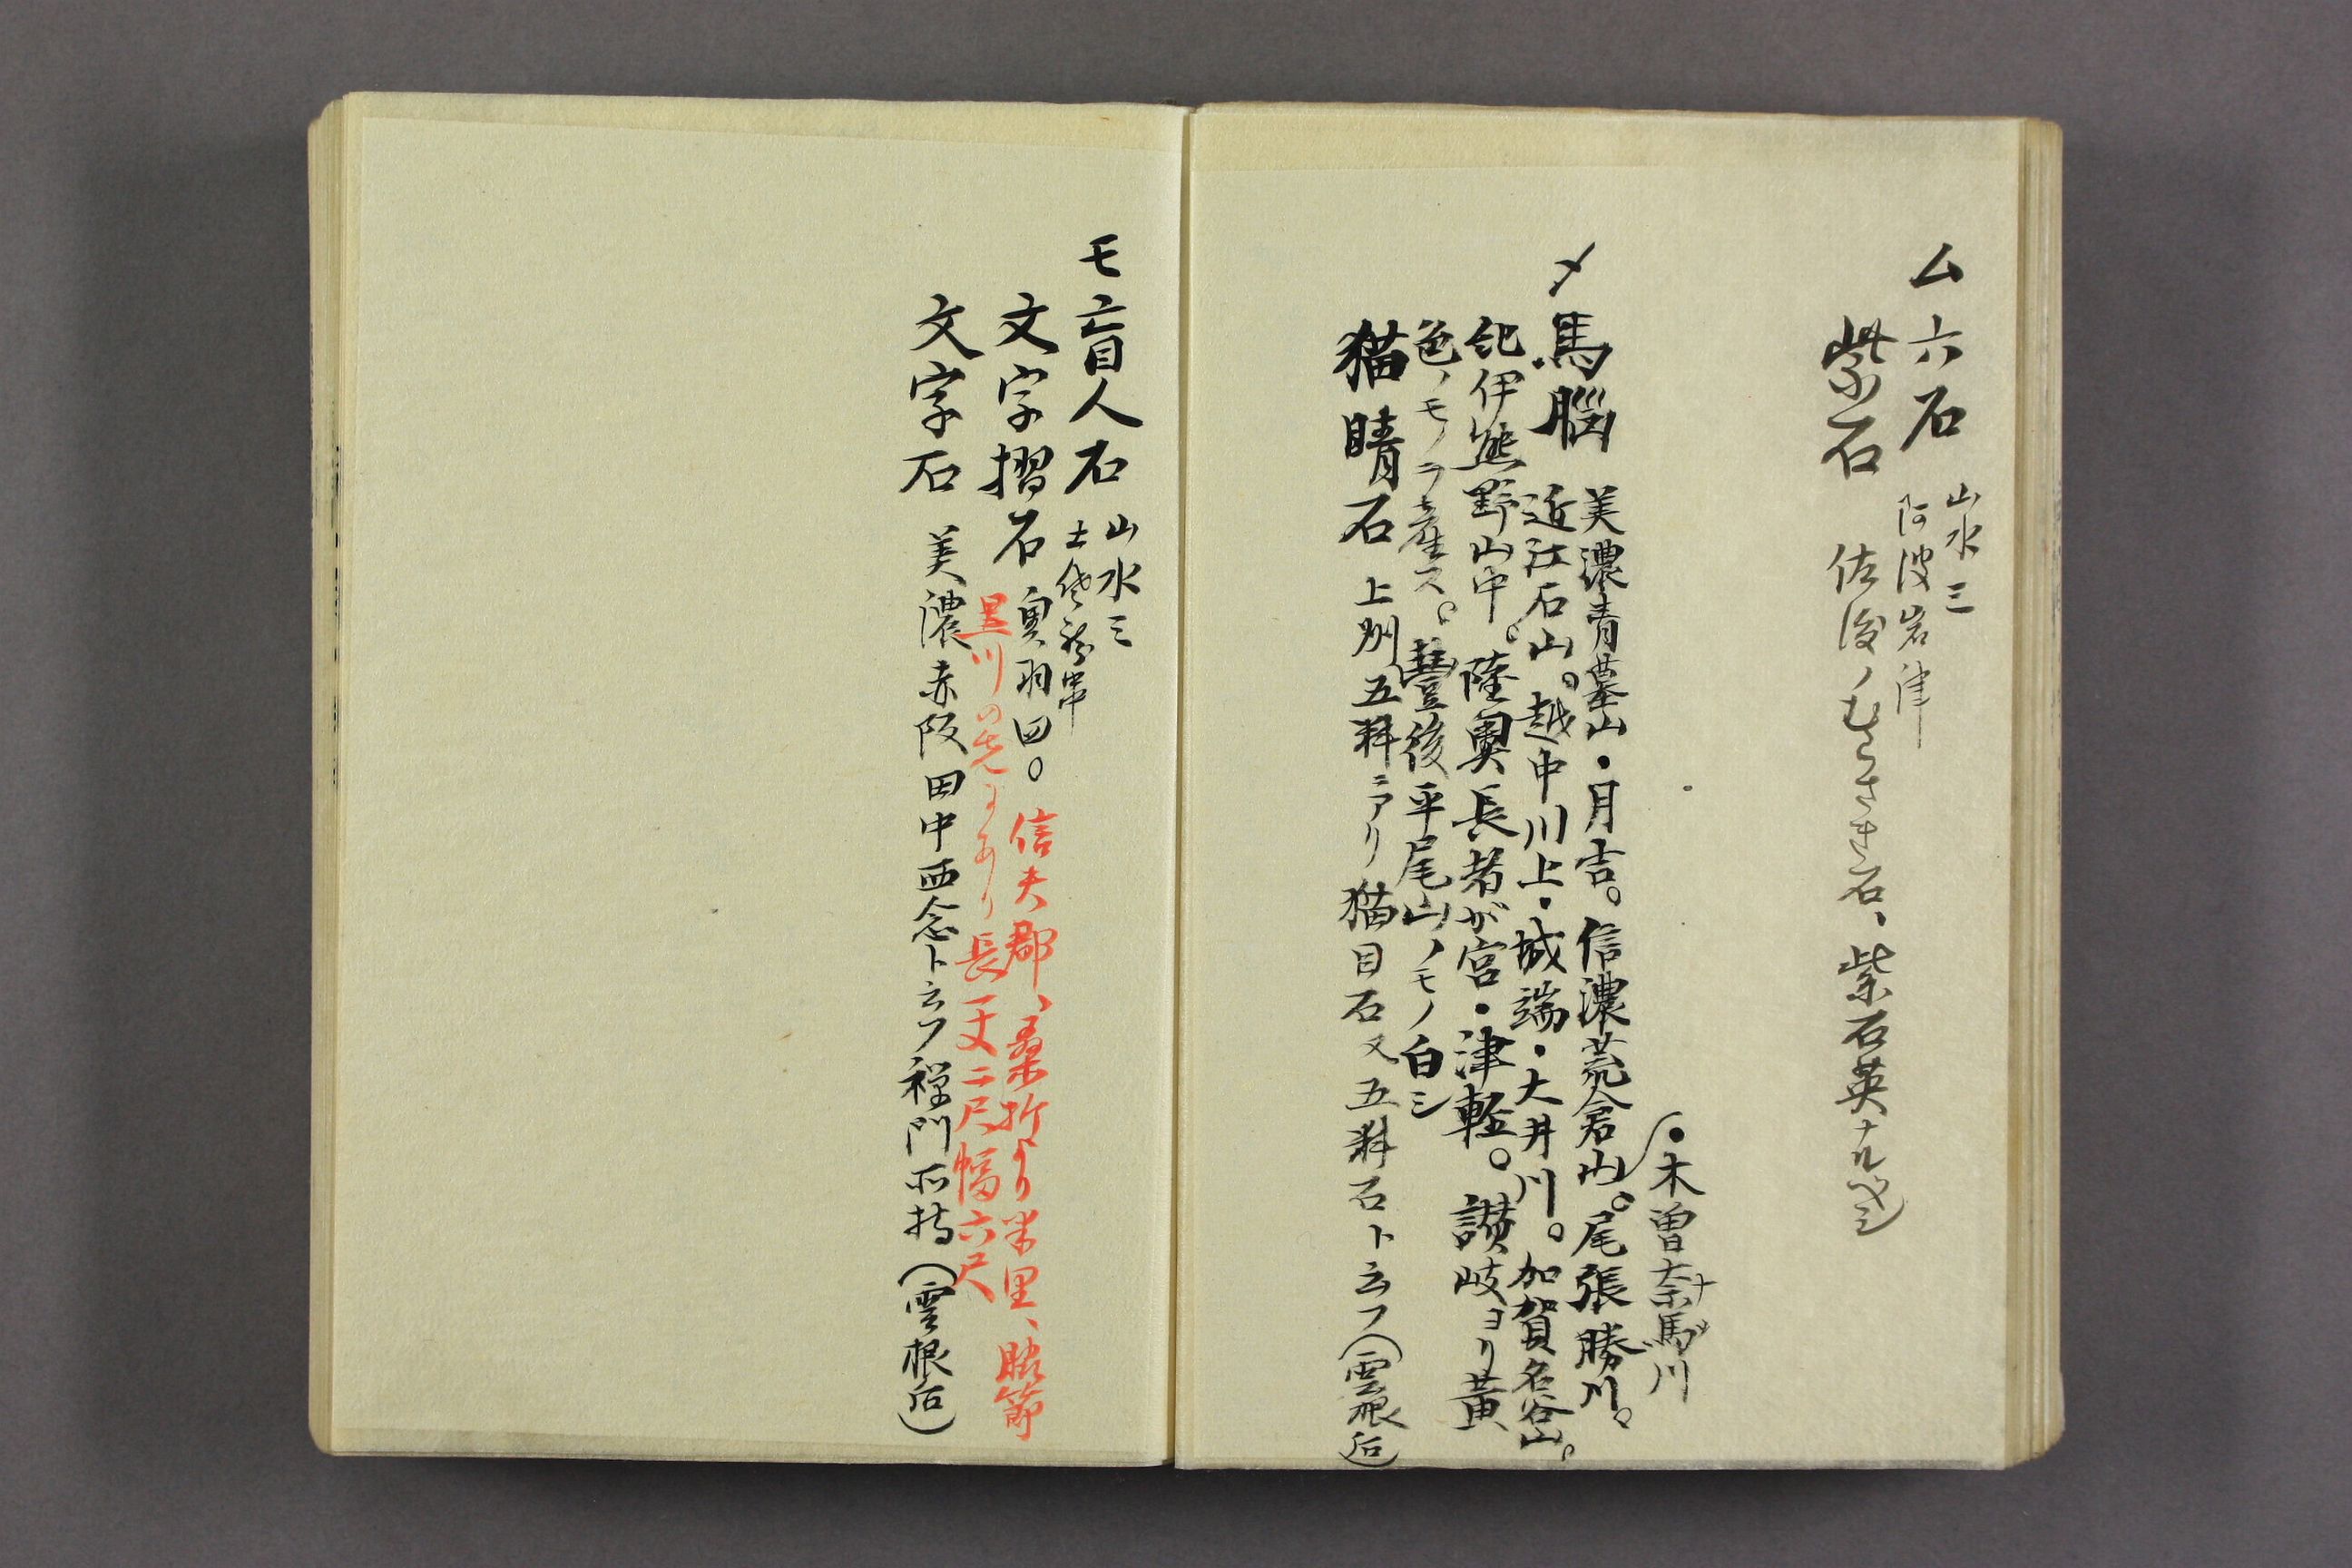 ム六石 山水三
阿波岩津
紫石 佐渡ノむらさき石、紫石英ナルベシ
・木曽奈馬川
ナ
メ馬腦 美濃青墓山・月吉。信濃荒倉山。尾張勝川。
近江石山。越中川上・城端・大井川。加賀名谷山。
紀伊熊野山中。陸奥長者が宮・津軽。讃岐ヨリ黄
色ノモノヲ産ス。豊後平尾山ノモノ白シ
猫睛石 上州五料ニアリ猫目石又五料石ト云フ(雲根后)
モ盲人石 山水三
文字摺石 奥羽四。信夫郡、桑折より半里、
黒川の先にあり長一丈二尺幅六尺
文字石 美濃赤阪田中西念ト云フ禅門所持(雲根后)